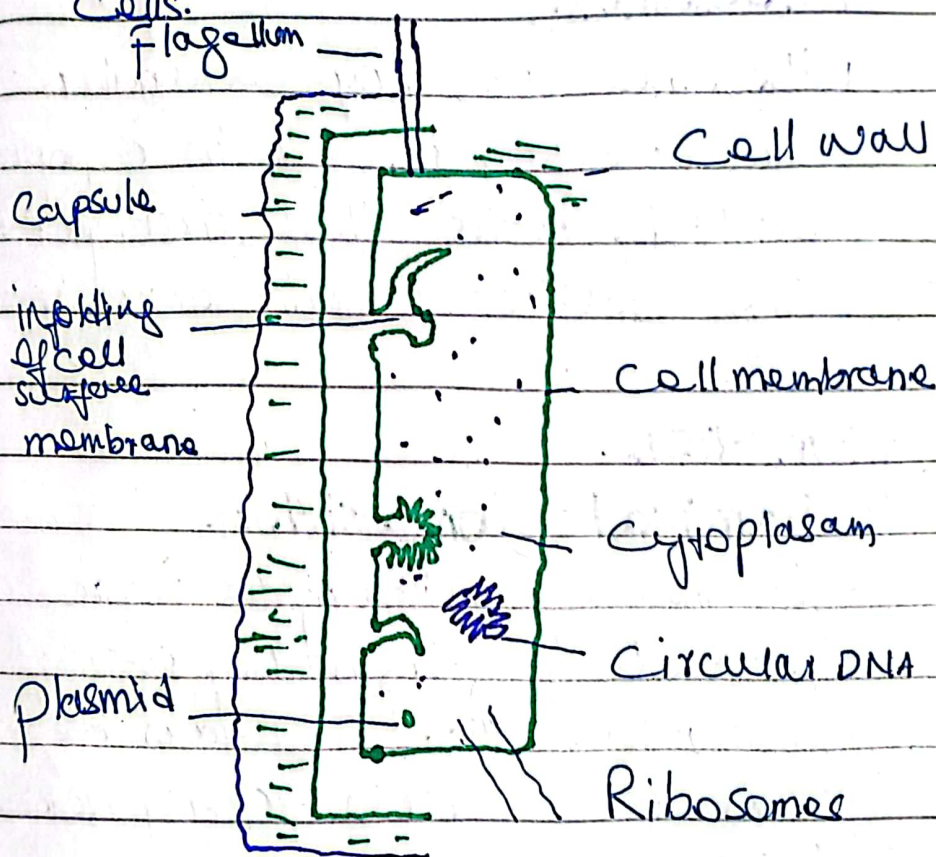 Cells.
Flagellum
Cell wall
Capsule
infolding
of cell
surface
membrane
Cell membrane
Cytoplasam
Circular DNA
plasmid
Ribosomes